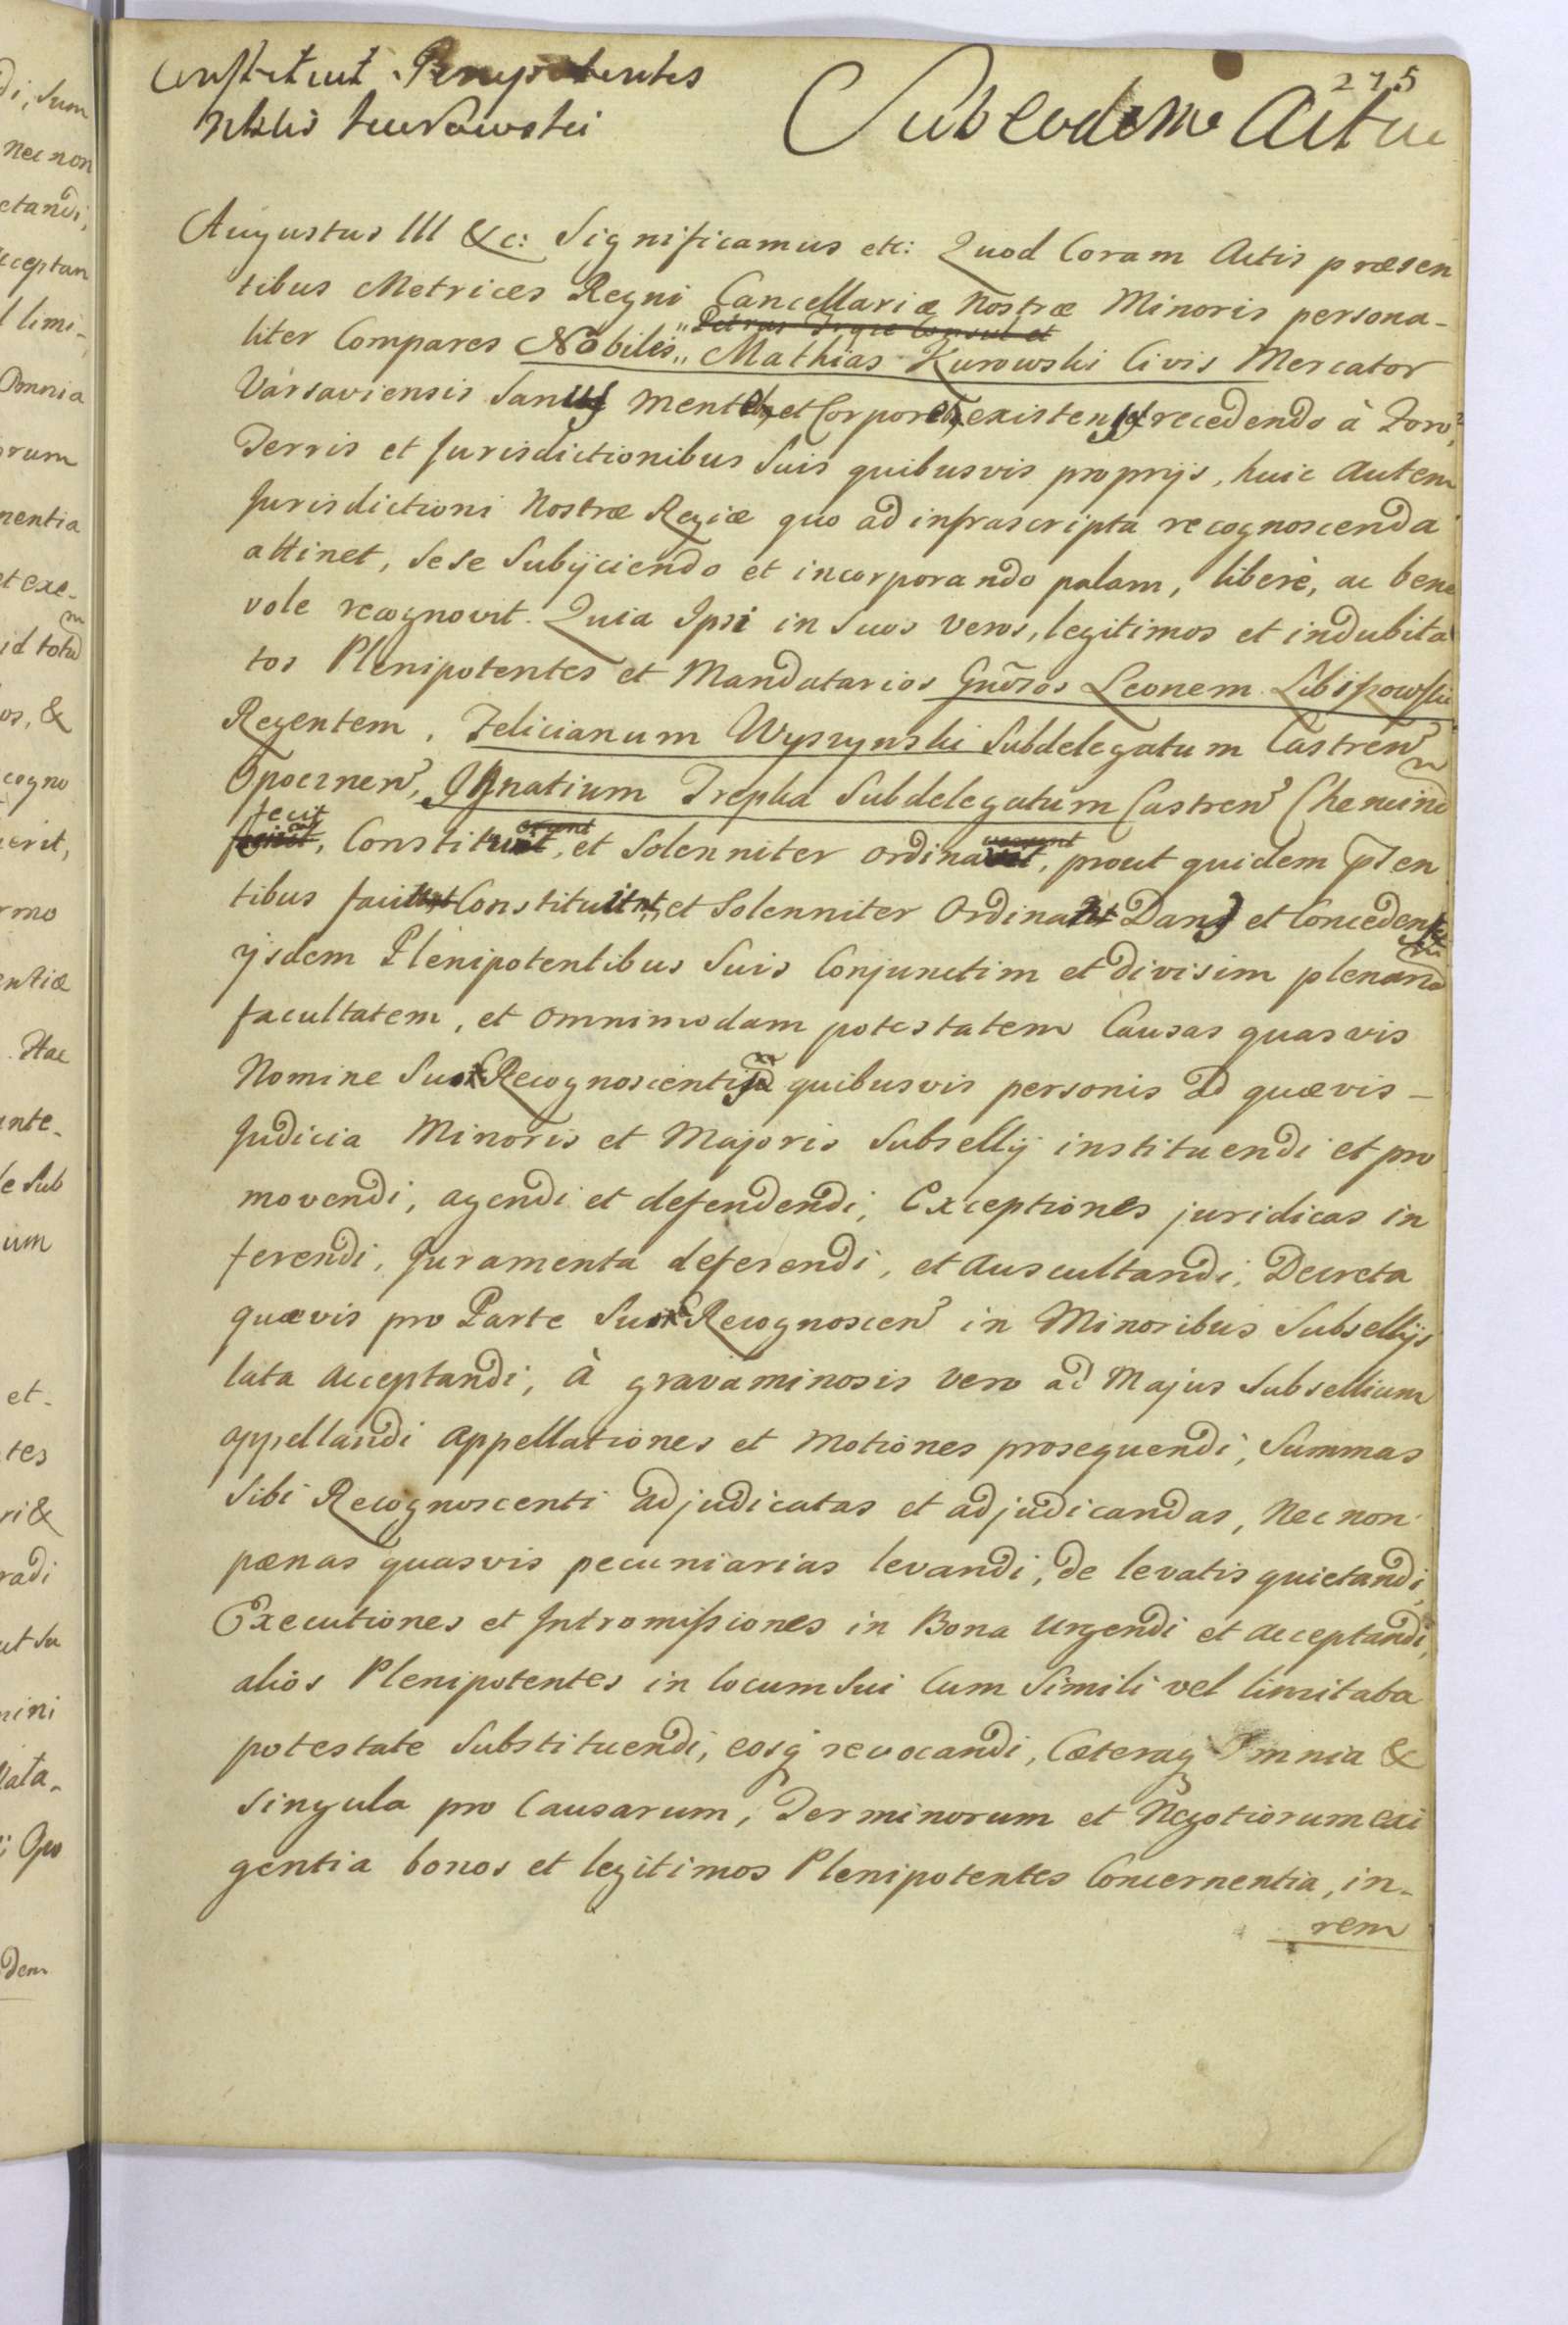 Constituit Plenipotentes
Nbilis Kurowski
275
Sub eodem Actu
Augustus III &c: Significamus etc: Quod Coram Actis præsen
tibus Metrices Regni Cancellariæ Nostræ Minoris persona-
Petrus Consul et
liter Compares Nobiles,, Mathias Kurowski Civis Mercator
Varsaviensis Sanus mente, et Corpore, existens recedendo à Foro,
Terris et Jurisdictionibus Suis quibusvis proprijs, huic autem
Jurisdictioni Nostræ Regiæ quo ad infrascripta recognoscenda
attinet, sese Subijciendo et incorporando palam, liberè, ac bene
vole recognovit. Quia Ipsi in Suos veros, legitimos et indubita
tos Plenipotentes et Mandatarios Gnõsos Leonem Libiszowski
Regentem, Felicianum Wyszynski Subdelegatum Castren
Opocznen, Ignatium Trepka Subdelegatum Castren Chencin
fecit
Constituit, et Solenniter ordinavit, prout quidem pñsen
tibus facit Constituit, et Solenniter Ordinat Dans et Concedens
ijsdem Plenipotentibus Suis Conjunctim et divisim plenam
facultatem, et omnimodam potestatem Causas quasvis
Nomine Suo Recognoscentis quibusvis personis ad quævis -
Judicia Minoris et Majoris Subsellij instituendi et pro
movendi, agendi et defendendi, Exceptiones juridicas in
ferendi, Juramenta deferendi, et auscultandi, Decreta
quævis pro Parte Sua Recognoscen in Minoribus Subsellijs
lata acceptandi, à gravaminosis vero ad Majus Subsellium
appellandi appellationes et motiones prosequendi, Summas
Sibi Recognoscenti adjudicatas et adjudicandas, Nec non
pænas quasvis pecuniarias levandi, de levatis quietandi,
Executiones et Intromissiones in Bona urgendi et acceptandi,
alios Plenipotentes in locum Sui Cum Simili vel limitata
potestate Substituendi, eosq revocandi, Cæteraq Omnia &
Singula pro Causarum, Terminorum et Negotiorum exi
gentia bonos et legitimos Plenipotentes Concernentia, in-
rem